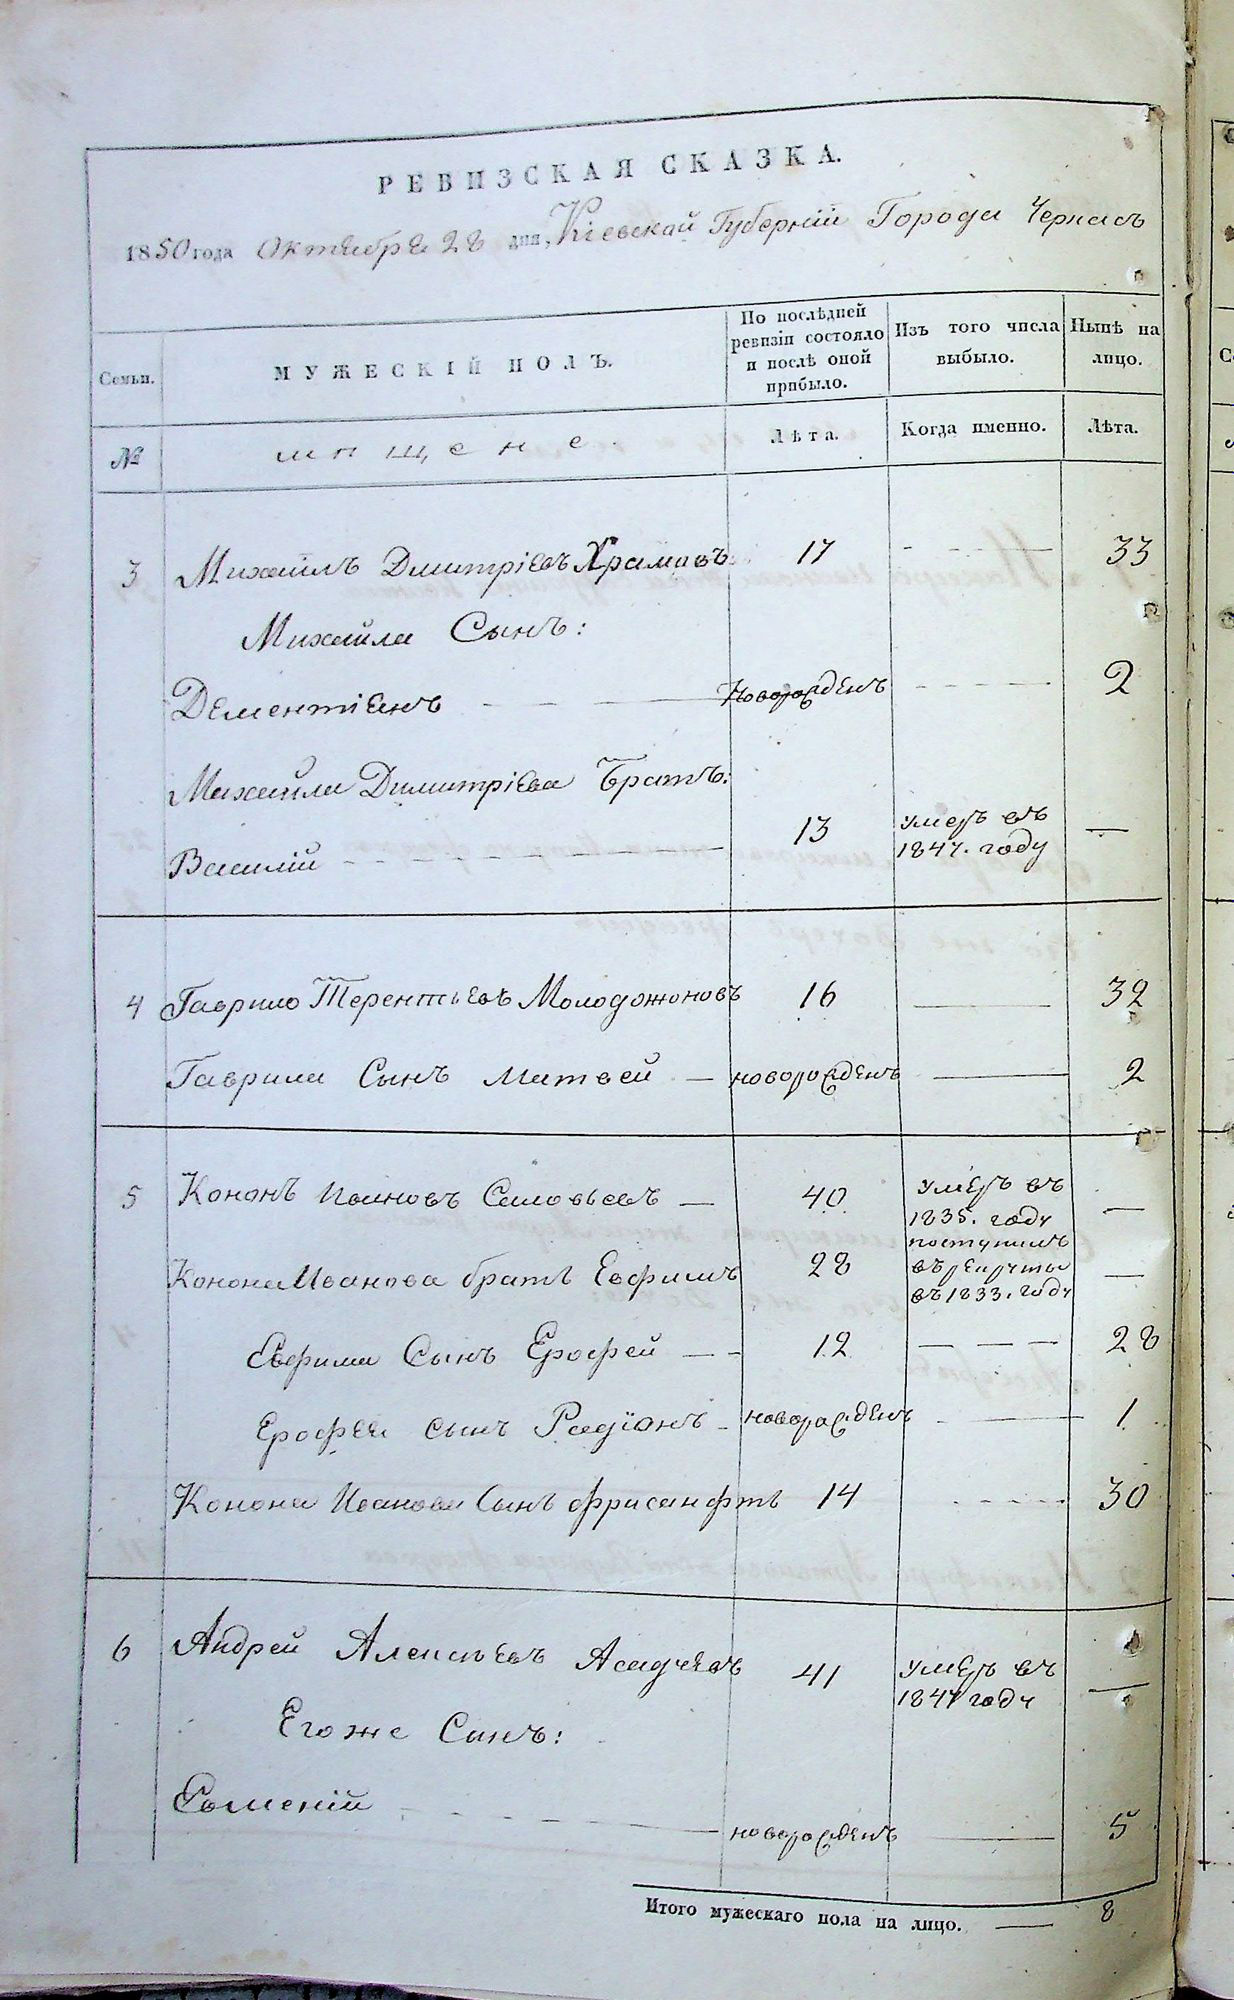 РЕВИЗСКАЯ СКАЗКА.
1850 года Октября 28 дня, Кіевской Губерніи Города Черкасъ
Семьи.
МУЖЕСКІЙ ПОЛЪ.
По послѣдней ревизіи состояло и послѣ оной прибыло.
Изъ того числа выбыло.
Нынѣ на лицо.
№
мѣщане
Лѣта.
Когда именно.
Лѣта.
3 Михаилъ Димитріевъ Храмовъ 17 33
Михайла Сынъ:
Дементіянъ новорожденъ 2
Михайла Димитріева Братъ:
Василій 13 умеръ въ 1847. году —
4 Гаврило Терентьевъ Молодожоновъ 16 — 32
Гаврила Сынъ Матвей — новорожденъ — 2
5 Кононъ Ивановъ Соловьевъ — 40 умеръ въ 1835. году —
Конона Иванова братъ Евфимъ 28 поступилъ въ рекруты въ 1833. году —
Евфима Сынъ Ерофей 12 28
Ерофея сынъ Радіонъ новорожденъ 1
Конона Иванова Сынъ Фрисанфтъ 14 30
6 Андрей Алексѣевъ Асадчевъ 41 умеръ въ 1847 году —
Его же Сынъ:
новорожденъ 5
Итого мужескаго пола на лицо. — 8